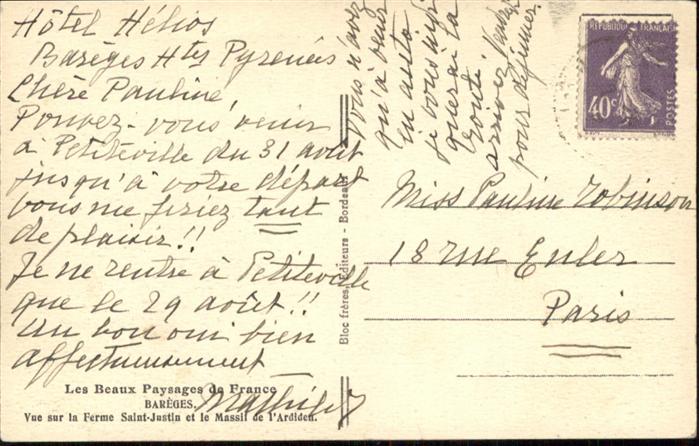 Hôtel Hélios
Barèges Htes Pyrenées
Chère Pauline,
Pouvez-vous venir
à Petiteville du 31 août
jusqu'à votre départ
vous me feriez tant
de plaisir!!
Je ne rentre à Petiteville
que le 29 août!!
Un bon oui bien
affectueusement
Mathilde
Les Beaux Paysages de France
BARÈGES.
Vue sur la Ferme Saint-Justin et le Massif de l'Ardiden.
Bloc frères, Editeurs - Bordeaux
Vous n'avez
qu'à venir
en auto
je vous indi
querai la
route!
arrivez
pour déjeuner.
RÉPUBLIQUE FRANÇAISE
40c
POSTES
Miss Pauline Robinson
18 rue Euler
Paris